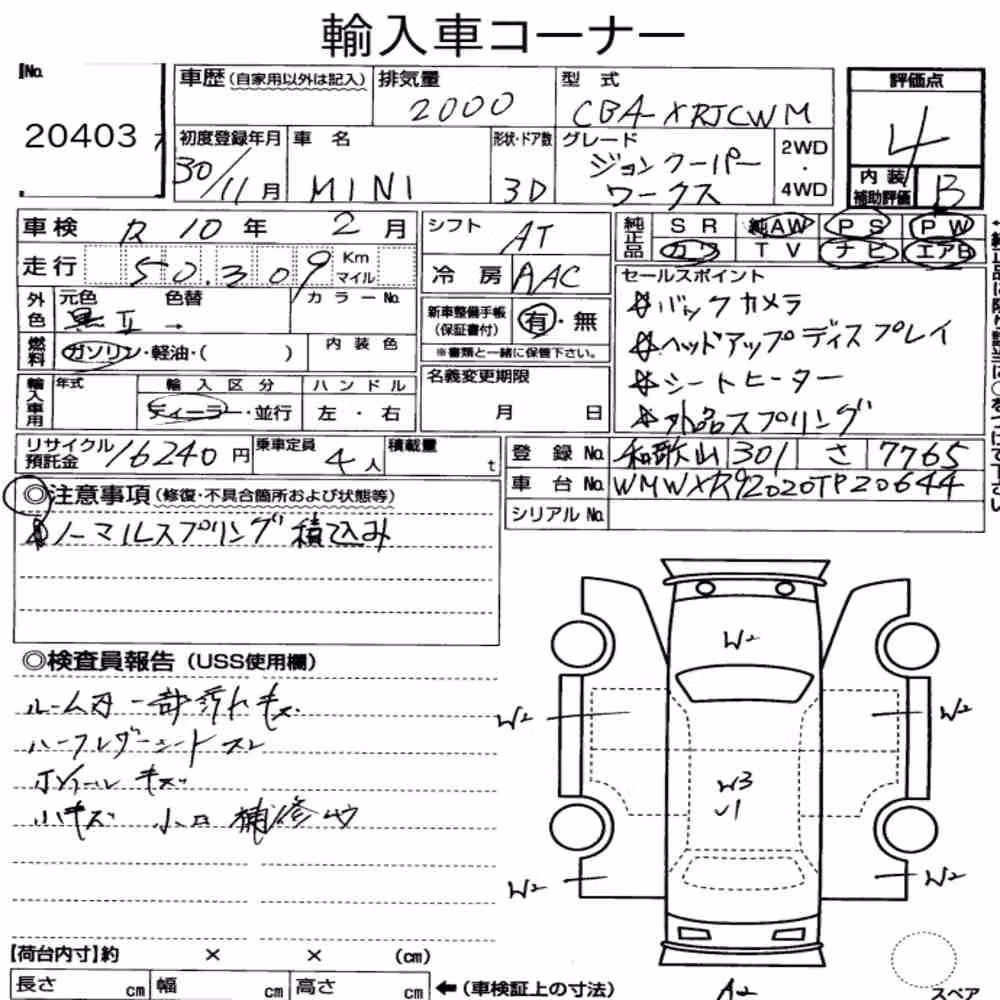 輸入車コーナー
No.
20403
車歴(自家用以外は記入) 排気量 2000 型式 CBA-XRJCWM
評価点 4
初度登録年月 30/11月 車名 MINI 形状・ドア数 3D グレード ジョンクーパーワークス 2WD・4WD
内装補助評価 B
車検 R10年 2月 シフト AT
純正品 SR 純AW PS PW
カワ TV ナビ エアB
走行 50,309 Km マイル 冷房 AAC
外色 元色 黒Ⅱ 色替 → カラーNo.
新車整備手帳(保証書付) 有・無
※書類と一緒に保管下さい。
燃料 ガソリン・軽油・( ) 内装色
輸入車用 年式 輸入区分 ディーラー・並行 ハンドル 左・右
名義変更期限 月 日
セールスポイント
☆バックカメラ
☆ヘッドアップディスプレイ
☆シートヒーター
☆外品スプリング
リサイクル預託金 16240円 乗車定員 4人 積載量 t
登録No. 和歌山 301 さ 7765
車台No. WMWXR92020TP20644
シリアルNo.
◎注意事項(修復・不具合箇所および状態等)
ノーマルスプリング積込み
◎検査員報告(USS使用欄)
ルーム内一部汚れキズ
ハーフレザーシートスレ
ホイールキズ
小キズ 小凹 補修
W2
W2 W2
W3
W2 W2
A2
【荷台内寸】約 × × (cm)
長さ cm 幅 cm 高さ cm ←(車検証上の寸法)
スペア